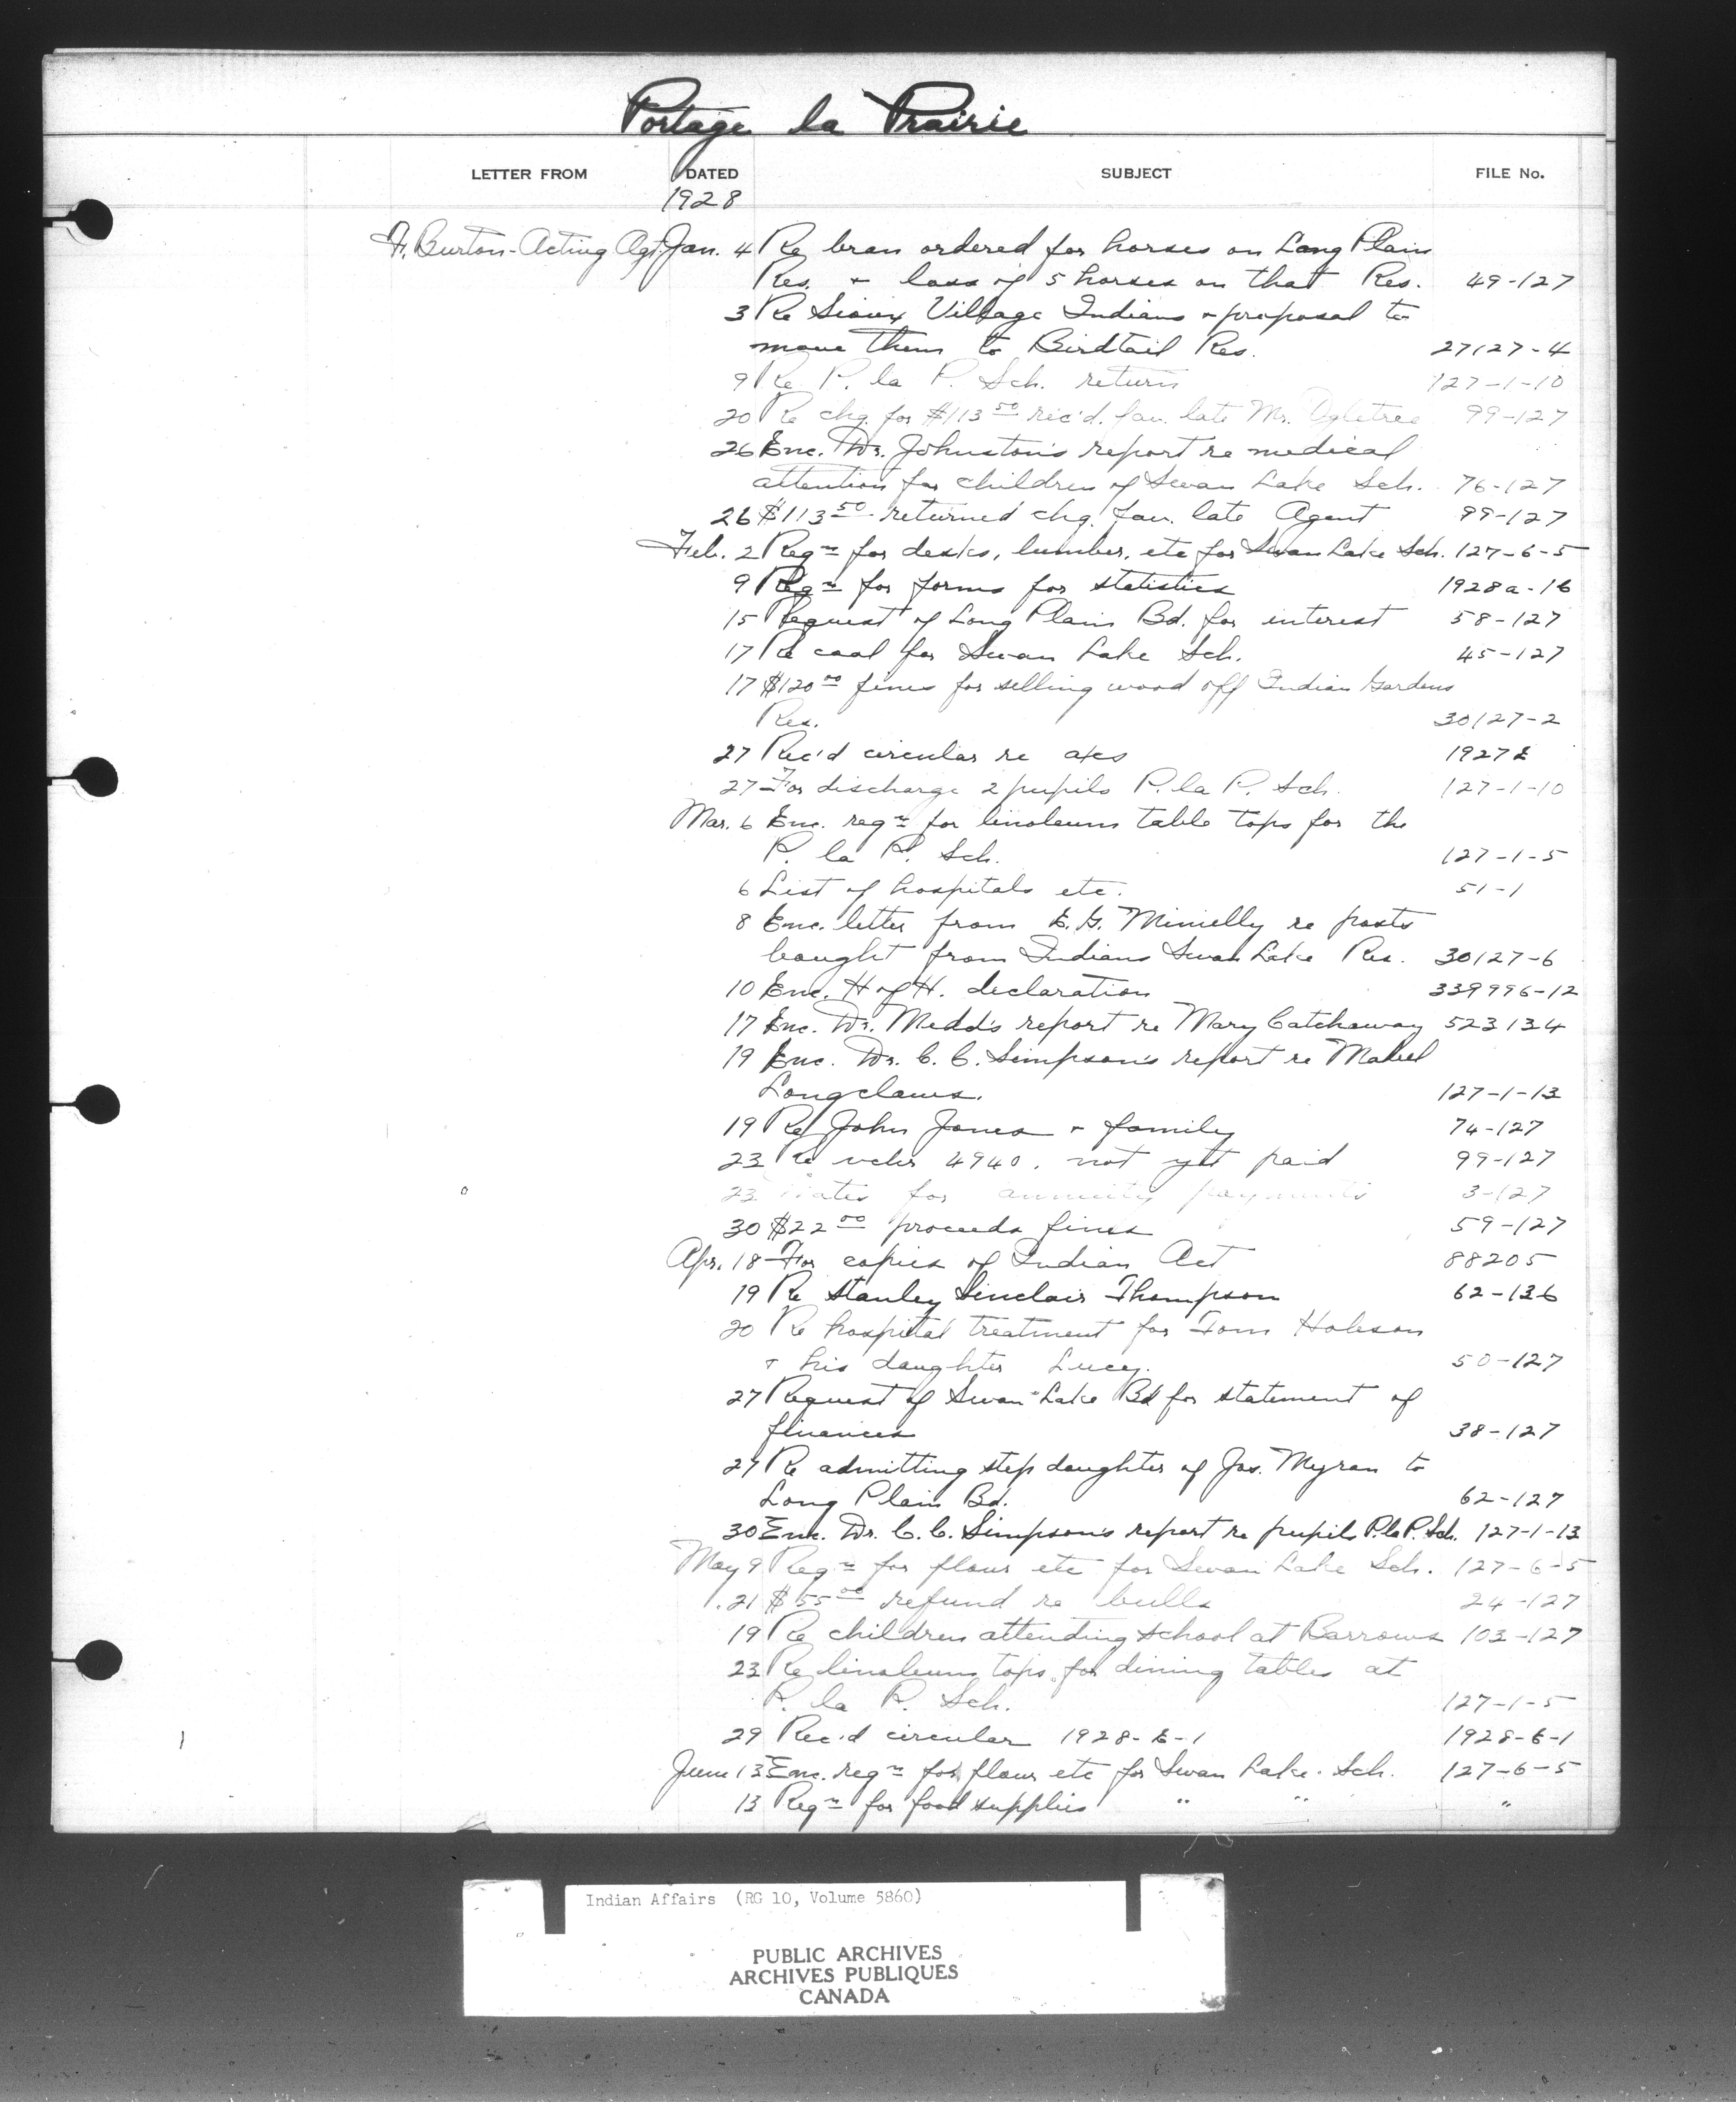 Portage la Prairie
LETTER FROM DATED SUBJECT FILE No.
1928
F. Burton - Acting Agt. Jan. 4 Re bran ordered for horses on Long Plain
Res. + loss of 5 horses on that Res. 49-127
3 Re Sioux Village Indians + proposal to
move them to Birdtail Res. 27127-4
9 Re P. la P. Sch. return 127-1-10
20 Re chq. for $113 50 rec'd. fav. late Mr. Ogletree 99-127
26 Enc. Dr. Johnston's report re medical
attention for children of Swan Lake Sch. 76-127
26 $113 50 returned chq. fav. late Agent 99-127
Feb. 2 Reqn for desks, lumber, etc for Swan Lake Sch. 127-6-5
9 Reqn for forms for statistics 1928a-16
15 Request of Long Plain Bd. for interest 58-127
17 Re coal for Swan Lake Sch. 45-127
17 $120 00 fines for selling wood off Indian Gardens
Res. 30127-2
27 Rec'd circular re axes 1927E
27 For discharge 2 pupils P. la P. Sch. 127-1-10
Mar. 6 Enc. reqn for linoleum table tops for the
P. la P. Sch. 127-1-5
6 List of hospitals etc. 51-1
8 Enc. letter from E. G. Minielly re posts
bought from Indians Swan Lake Res. 30127-6
10 Enc. H of H. declaration 339996-12
17 Enc. Dr. Medd's report re Mary Catchaway 523134
19 Enc. Dr. C. C. Simpson's report re Mabel
Longclaws. 127-1-13
19 Re John Jones + family 74-127
23 Re vchr 4940. not yet paid 99-127
23 Dates for annuity payments 3-127
30 $22 00 proceeds fines 59-127
Apr. 18 For copies of Indian Act 88205
19 Re Stanley Sinclair Thompson 62-136
20 Re hospital treatment for Tom Hobson
+ his daughter Lucy. 50-127
27 Request of Swan Lake Bd for statement of
finances 38-127
27 Re admitting step daughter of Jos. Myran to
Long Plain Bd. 62-127
30 Enc. Dr. C. C. Simpson's report re pupils P. la P. Sch. 127-1-13
May 9 Reqn for flour etc for Swan Lake Sch. 127-6-5
21 $55 00 refund re bulls 24-127
19 Re children attending school at Barrows 103-127
23 Re linoleum tops for dining tables at
P. la P. Sch. 127-1-5
29 Rec'd circular 1928-E-1 1928-E-1
June 13 Enc. reqn for flour etc for Swan Lake Sch. 127-6-5
13 Reqn for food supplies " " "
Indian Affairs (RG 10, Volume 5860)
PUBLIC ARCHIVES
ARCHIVES PUBLIQUES
CANADA